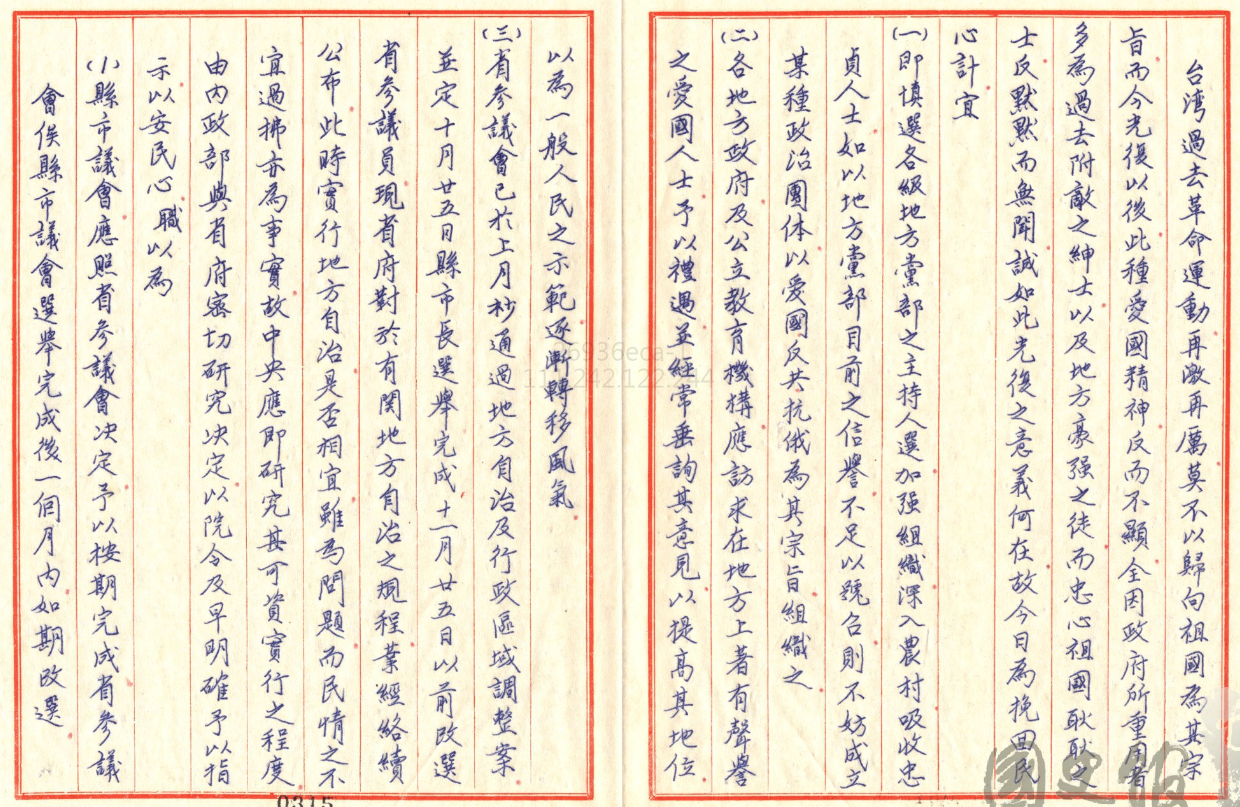 台湾過去革命運動再激再厲莫不以歸向祖國為其宗
旨而今光復以後此種愛國精神反而不顯全因政府所重用者
多為過去附敵之紳士以及地方豪强之徒而忠心祖國耿耿之
士反默默而無聞誠如此光復之意義何在故今日為挽囬民
心計宜
(一)即填選各級地方黨部之主持人選加强組織深入農村吸收忠
貞人士如以地方黨部目前之信譽不足以號召則不妨成立
某種政治團体以爱國反共抗俄為其宗旨組織之
(二)各地方政府及公立教育機構應訪求在地方上著有聲譽
之愛國人士予以禮遇並經常垂詢其意見以提高其地位
以為一般人民之示範逐漸轉移風氣
(三)省参議會已於上月秒通過地方自治及行政區域調整案
並定十月廿五日縣市長選舉完成十一月廿五日以前改選
省参議員現省府對於有関地方自治之規程業經絡續
公布此時實行地方自治是否相宜雖為問題而民情之不
宜過拂亦為事實故中央應即研究其可資實行之程度
由內政部與省府密切研究决定以院令及早明確予以指
示以安民心職以為
(1)縣市議會應照省参議會决定予以按期完成省参議
會俟縣市議會選舉完成後一個月內如期改選
0315
國史館